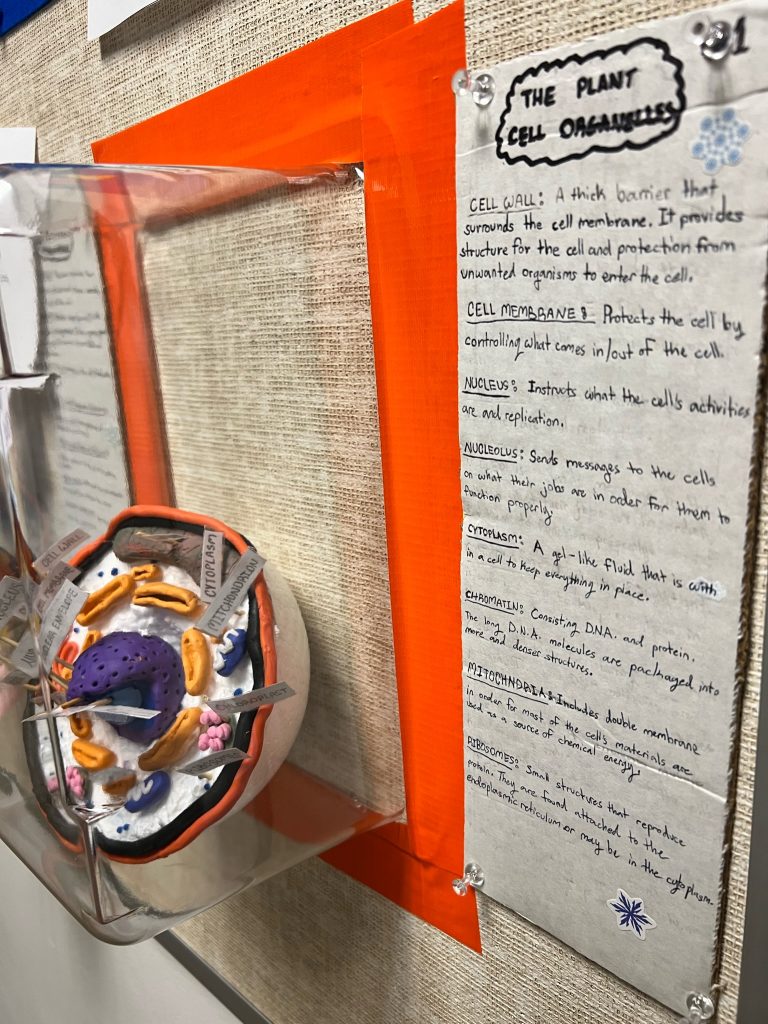 1
THE PLANT
CELL ORGANELLES
CELL WALL: A thick barrier that
surrounds the cell membrane. It provides
structure for the cell and protection from
unwanted organisms to enter the cell.
CELL MEMBRANE: Protects the cell by
controlling what comes in/out of the cell.
NUCLEUS: Instructs what the cell's activities
are and replication.
NUCLEOLUS: Sends messages to the cells
on what their jobs are in order for them to
function properly.
CYTOPLASM: A gel-like fluid that is with
in a cell to keep everything in place.
CHROMATIN: Consisting D.N.A. and protein.
The long D.N.A. molecules are packaged into
more and denser structures.
MITOCHNDRIA: Includes double membrane
in order for most of the cell's materials are
used as a source of chemical energy.
RIBOSOMES: Small structures that reproduce
protein. They are found attached to the
endoplasmic reticulum or may be in the cytoplasm.
CELL WALL
CYTOPLASM
MITCHONDRION
ENVELOPE
CHLOROPLAST